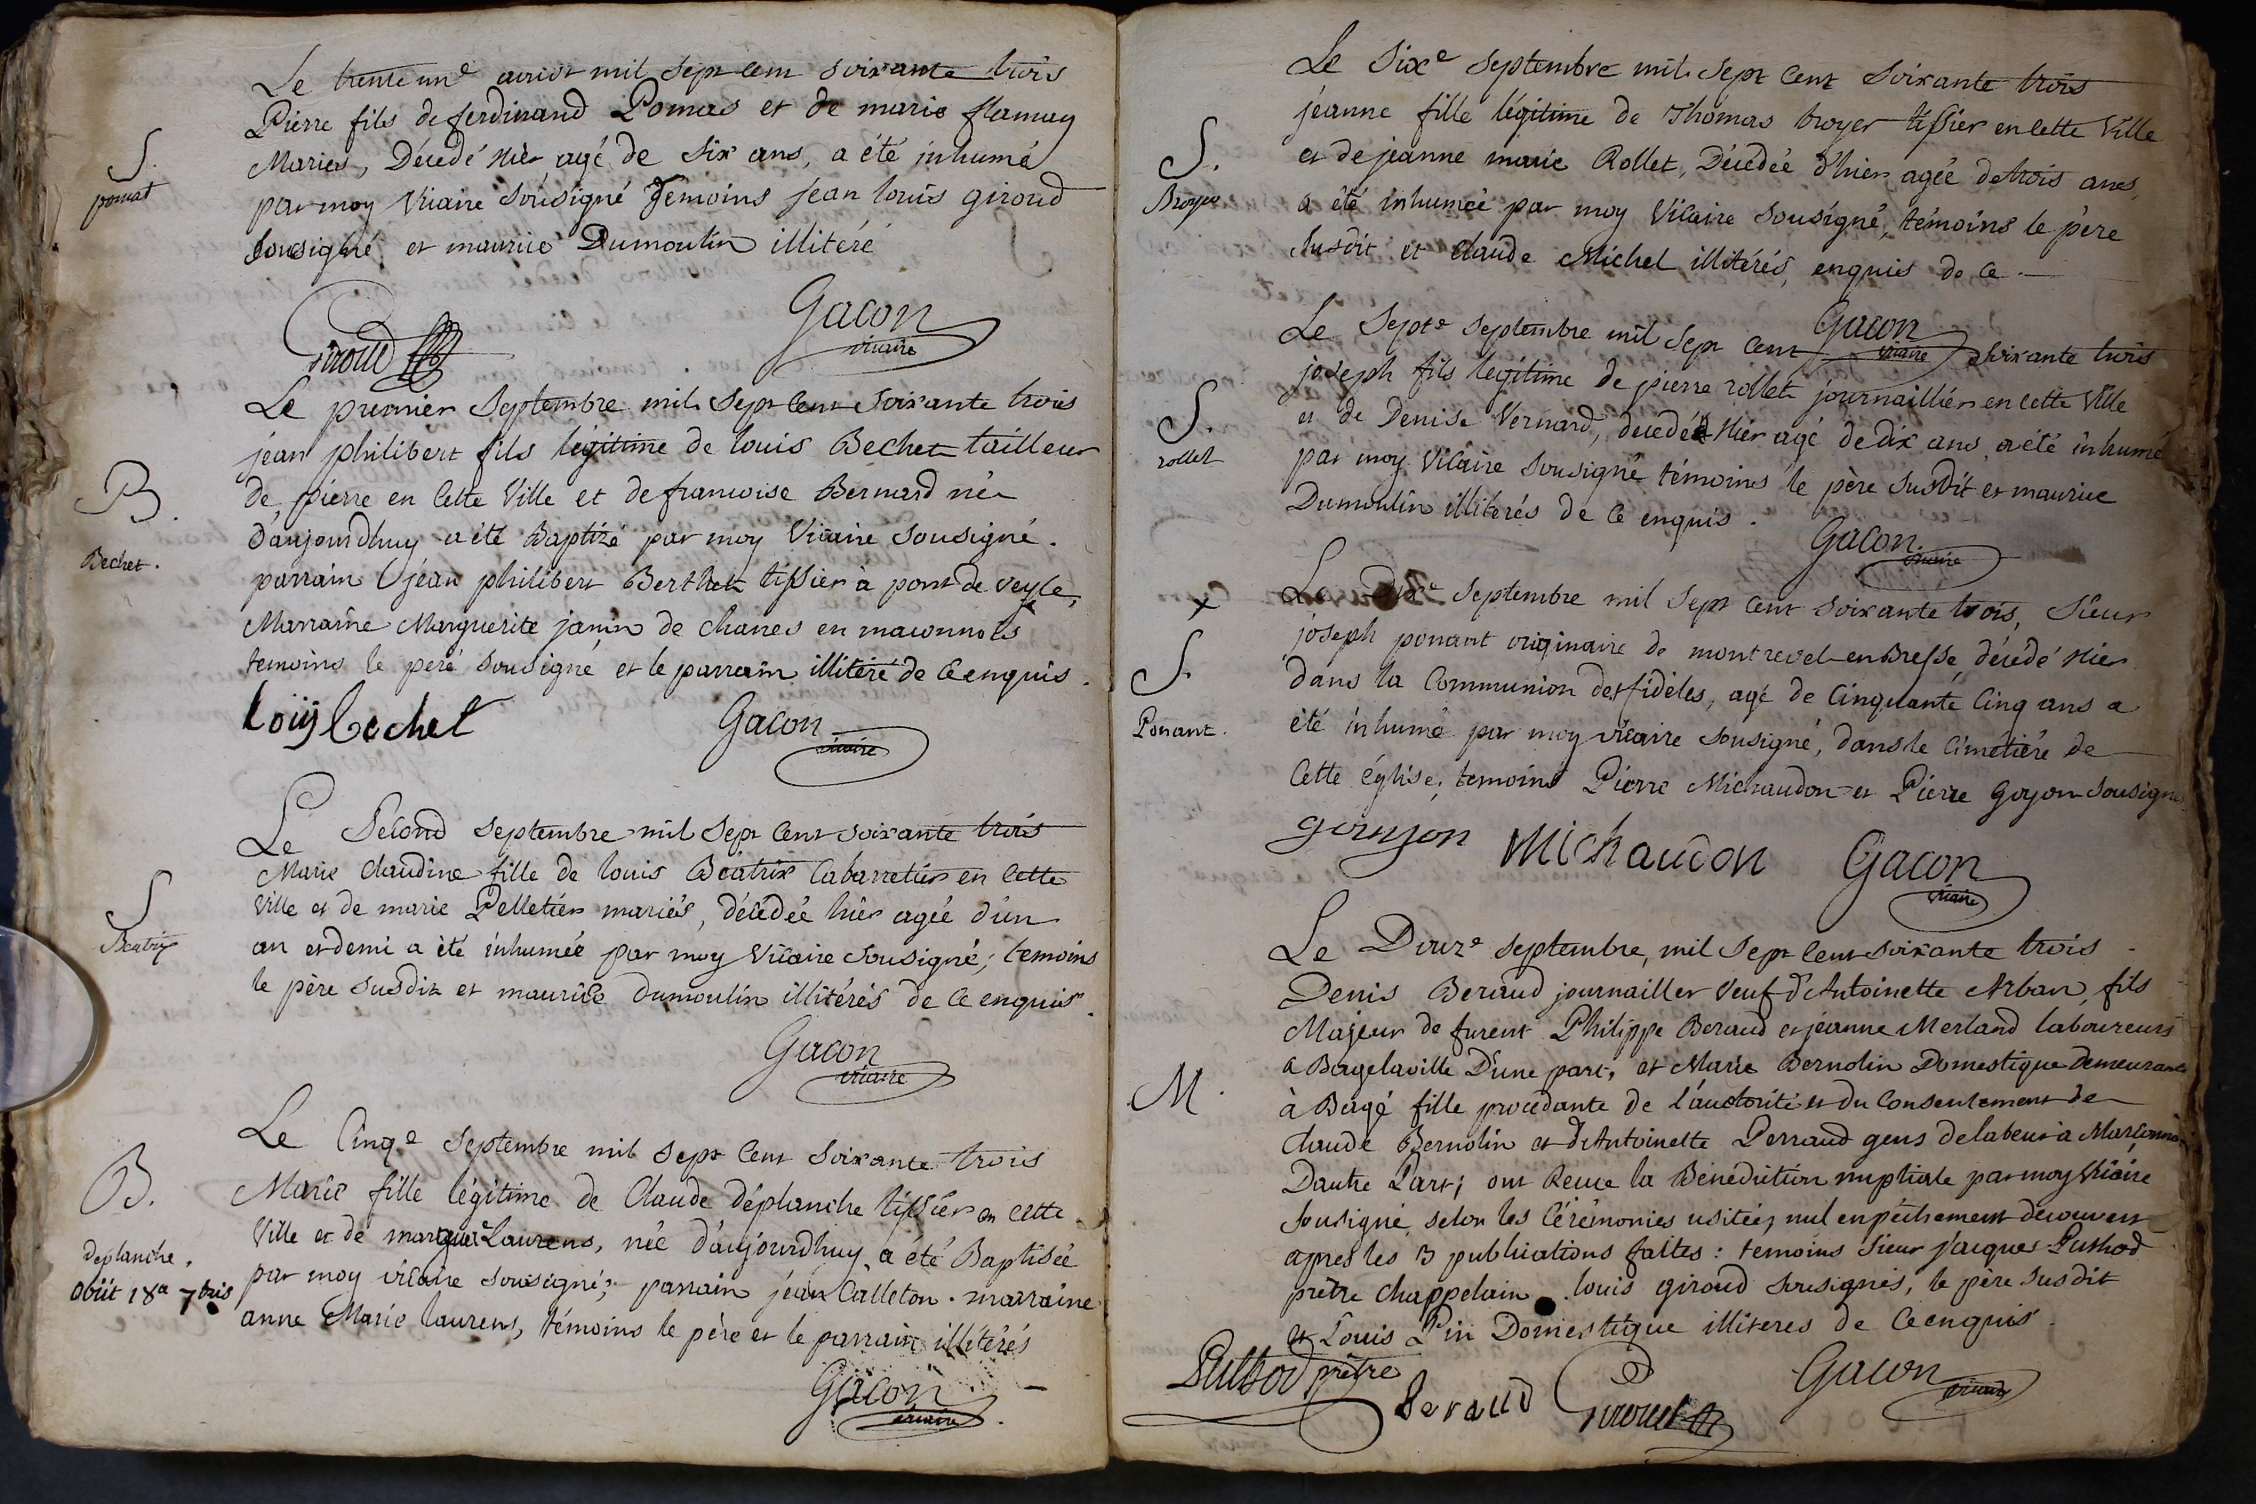 Le trente un.e aoust mil sept cent soixante trois
S.
pomat
Pierre fils de ferdinand Pomas et de marie flamay
Maries, Décedé Hier, agé de six ans, a été inhumé
par moy Vicaire sousigné Temoins jean louis giroud
sousigné et maurice Dumoulin illitéré
Giroud
Gacon
vicaire
Le premier septembre mil sept cent soixante trois
B.
Bechet.
jean philibert fils légitime de louis Bechet tailleur
de pierre en cette Ville et de francoise Bernard né
d'aujourdhuy a été Baptizé par moy Vicaire sousigné.
parrain jean philibert Berthet tissier à pont de veyle,
Marraine Marguerite janin de chanes en maconnois
temoins le peré sousigné et le parrain illitéré de ce enquis.
loüÿ bechet
Gacon
vicaire
Le Second septembre mil sept cent soixante trois
S
Beatrix
Marie claudine fille de louis Béatrix Cabarretier en cette
Ville et de marie Pelletier mariés, décédée hier agée d'un
an et demi a été inhumée par moy Vicaire sousigné; temoins
le père susdit et maurice dumoulin illitérés de ce enquis.
Gacon
vicaire
Le Cinq.e septembre mil sept cent soixante trois
B.
deplanche.
obiit 18a 7bris
Marie fille légitime de Claude déplanche tissier en cette
Ville et de marguer Laurens, née d'aujourdhuy a été Baptisée
par moy vicaire sousigné; parrain jéan Calleton. marraine
anne Marie laurens, témoins le père et le parrain illitérés
Gacon
vicaire
Le Six.e septembre mil sept cent soixante trois
S.
Broyer
jeanne fille légitime de Thomas broyer tissier en cette Ville
et de jeanne marie Rollet, Décédée d'hier agée de trois ans,
a été inhumée par moy Vicaire sousigné, témoins le père
susdit et claude Michel illitérés, enquis de ce.
Gacon
vicaire
Le Sept.e septembre mil sept cent soixante trois
S.
rollet
joseph fils légitime de pierre rollet journaillier en cette Ville
et de Denise Vernard, décédé Hier agé de dix ans a été inhumé
par moy Vicaire sousigné témoins le père susdit et maurice
Dumoulin illitérés de ce enquis.
Gacon
vicaire
x
S.
Ponant.
Le Dix.e septembre mil sept cent soixante trois, Sieur
joseph ponant originaire de montrevel en Bresse, décédé Hier
dans la Communion des fidèles, agé de Cinquante Cinq ans a
été inhumé par moy vicaire sousigné, dans le Cimétière de
cette église; temoins Pierre Michaudon et Pierre Goyon sousignés
goujon
Michaudon
Gacon
vicaire
Le Douz.e septembre, mil sept cent soixante trois
M.
Denis Beraud journailler Veuf d'Antoinette Arban, fils
Majeur de furent Philippe Beraud et jeanne Merland laboureurs
a Bagelaville D'une part, et Marie Bernolin Domestique demeurante
à Bagé fille procédante de l'auctorité et du Consentement de
claude Bernolin et d'Antoinette Perraud gens de labeur à Marsonnas
Dautre Part; ont Recue la Bénédiction nuptiale par moy Vicaire
sousigné selon les Cérémonies usitées, nul enpéchement découvert
apres les 3 publications faites: temoins Sieur jacques Puthod
prêtre chappelain louis giroud sousignés, le père susdit
et Louis Pin Domestique illiteres de ce enquis.
Puthod prêtre
beraud
Giroud
Gacon
vicaire